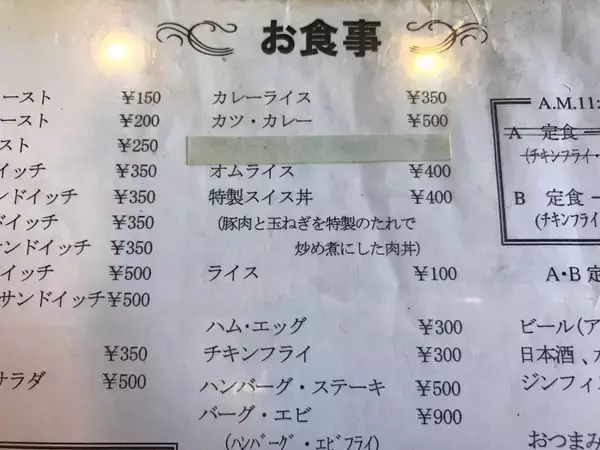 お食事
ースト ¥150
ースト ¥200
スト ¥250
イッチ ¥350
ンドイッチ ¥350
ドイッチ ¥350
サンドイッチ ¥350
イッチ ¥500
サンドイッチ ¥500
¥350
サラダ ¥500
カレーライス ¥350
カツ・カレー ¥500
オムライス ¥400
特製スイス丼 ¥400
(豚肉と玉ねぎを特製のたれで
炒め煮にした肉丼)
ライス ¥100
ハム・エッグ ¥300
チキンフライ ¥300
ハンバーグ・ステーキ ¥500
バーグ・エビ ¥900
(ハンバーグ・エビフライ)
A.M.11:
A 定食
(チキンフライ・
B 定食
(チキンフライ
A・B 定
ビール(ア
日本酒、
ジンフィ
おつまみ